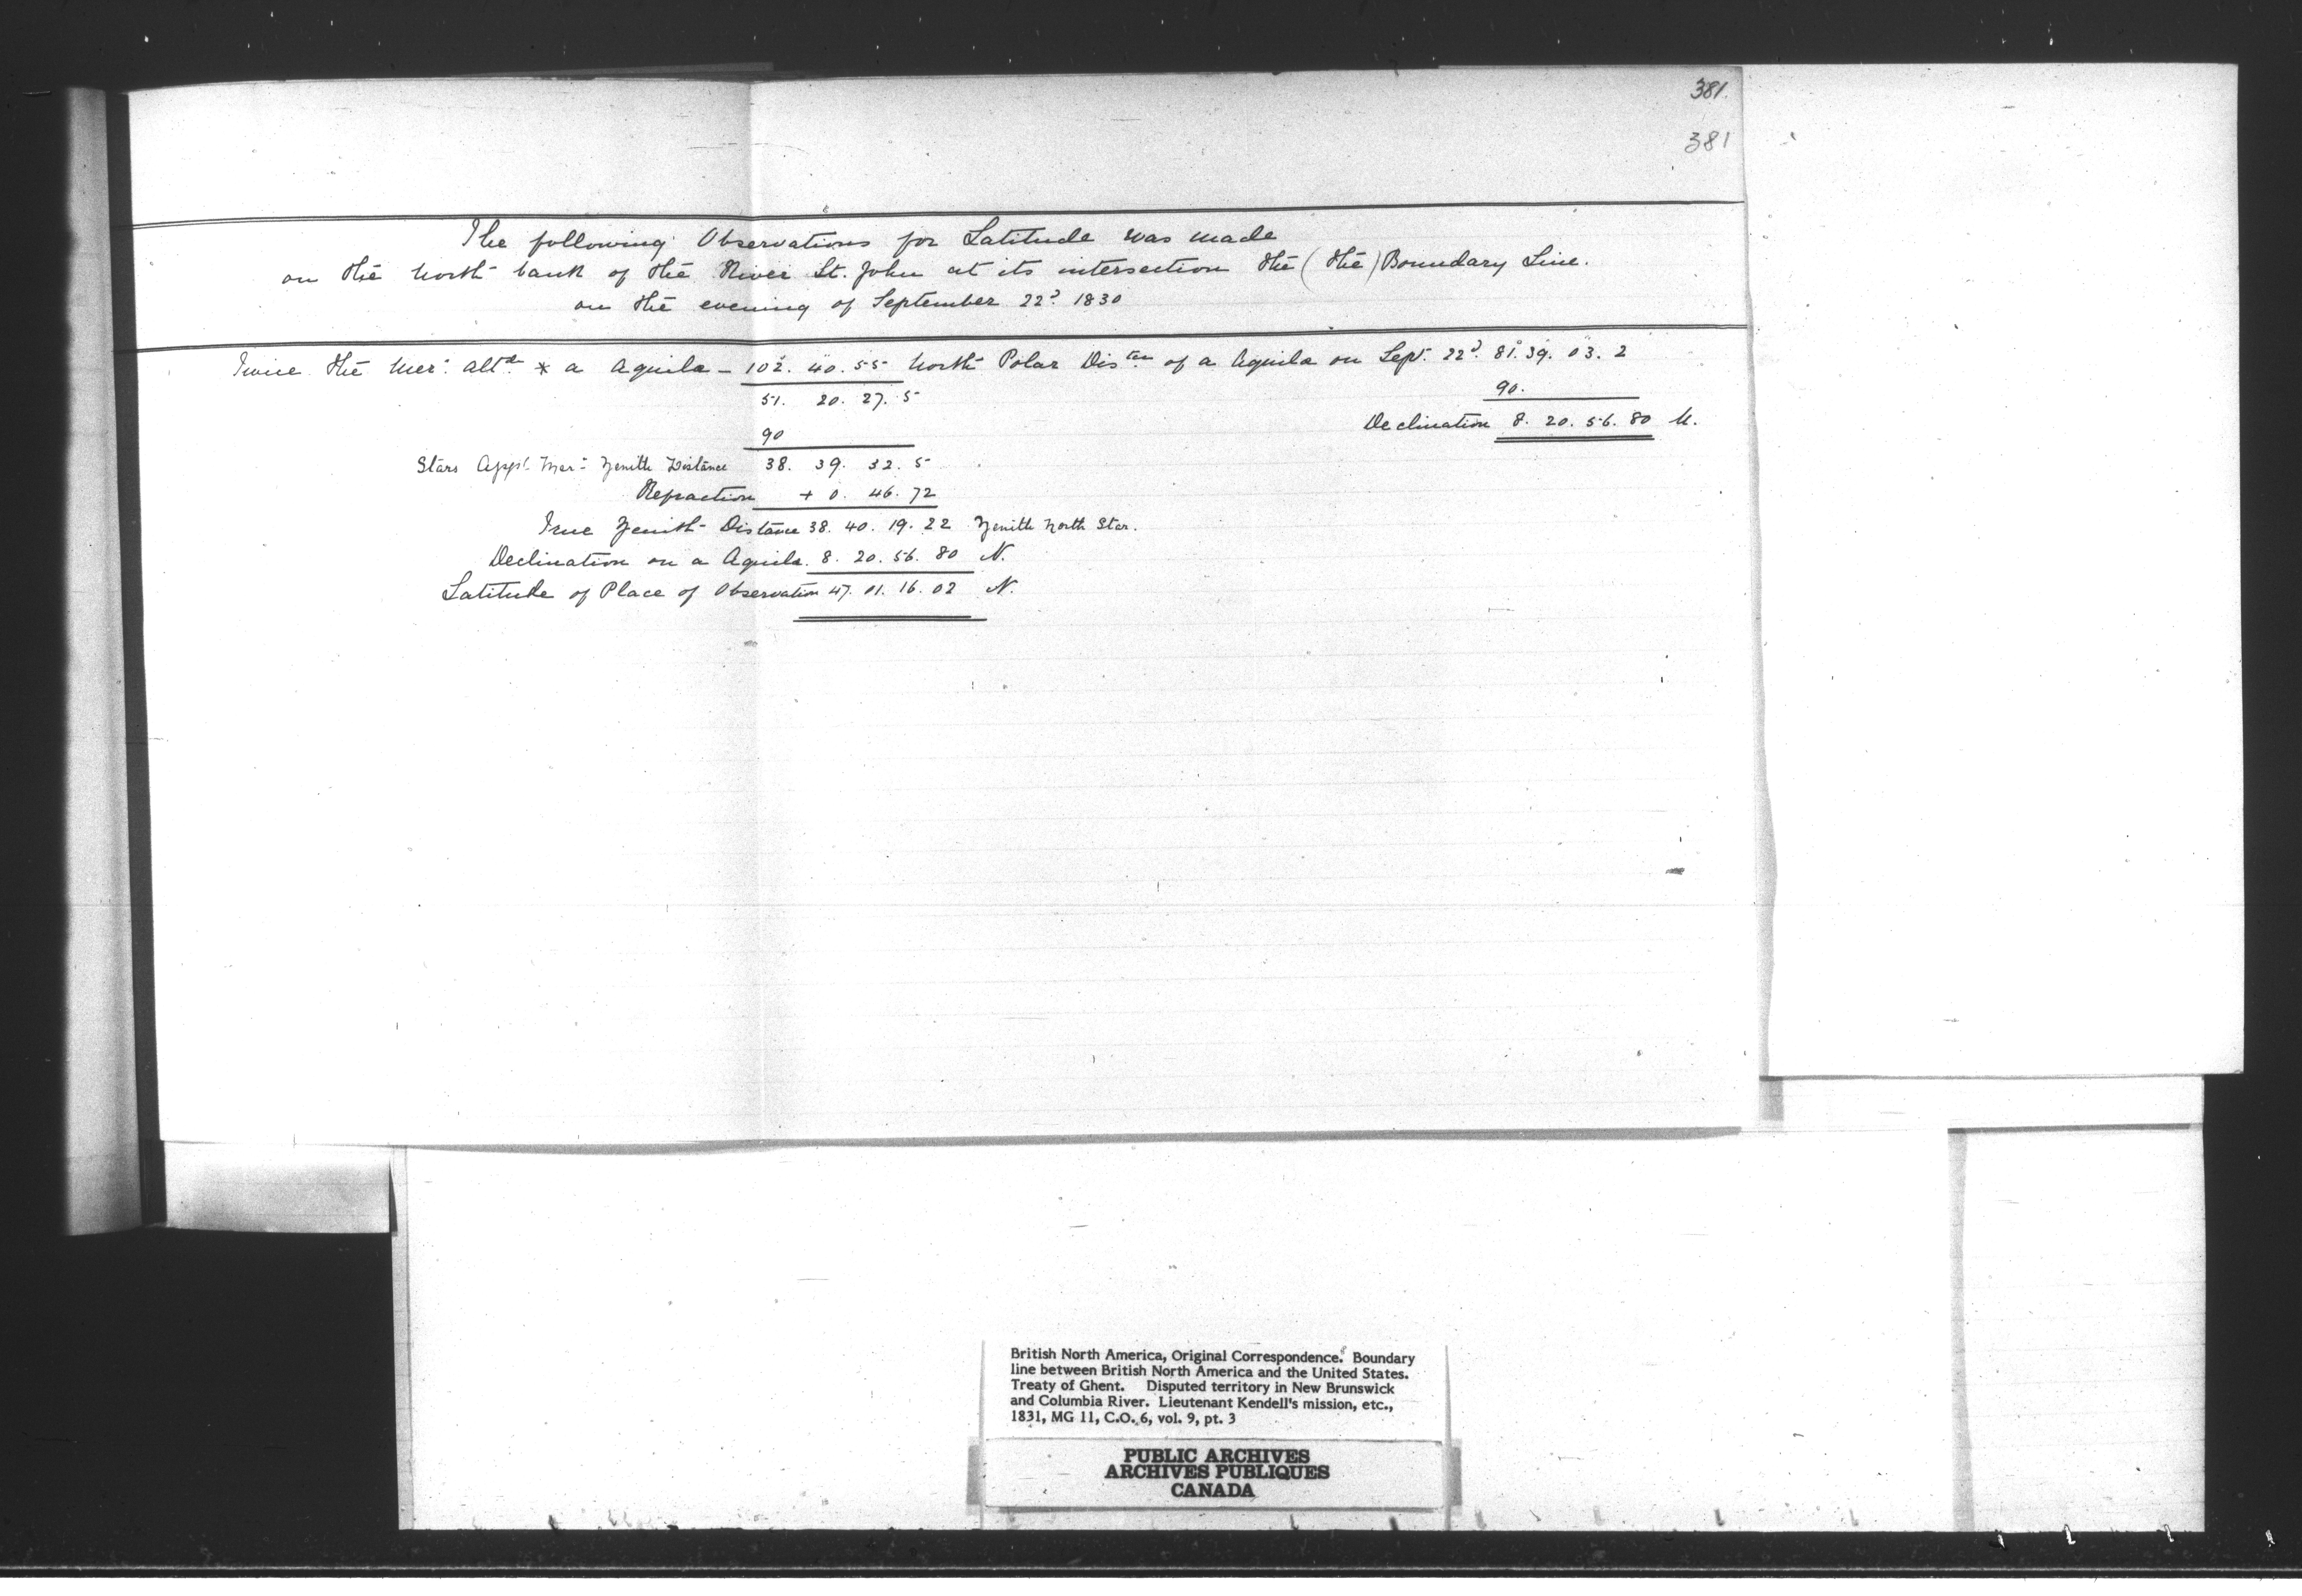 381.
381
The following Observations for Latitude was made
on the North bank of the River St. John at its intersection the (the) Boundary Line.
on the evening of September 22d. 1830
Twice the Mer. altde * a Aquila - 102°. 40. 55 North Polar Disten of a Aquila on Sept. 22d. 81°. 39. 03. 2
51. 20. 27. 5 90.
90 Declination 8. 20. 56. 80 N.
Stars Appt. Mer. Zenith Distance 38. 39. 32. 5
Refraction + 0. 46. 72
True Zenith Distance 38. 40. 19. 22 Zenith North Star.
Declination on a Aquila. 8. 20. 56. 80 N.
Latitude of Place of Observation 47. 01. 16. 02 N.
British North America, Original Correspondence. Boundary
line between British North America and the United States.
Treaty of Ghent. Disputed territory in New Brunswick
and Columbia River. Lieutenant Kendell's mission, etc.,
1831, MG 11, C.O. 6, vol. 9, pt. 3
PUBLIC ARCHIVES
ARCHIVES PUBLIQUES
CANADA